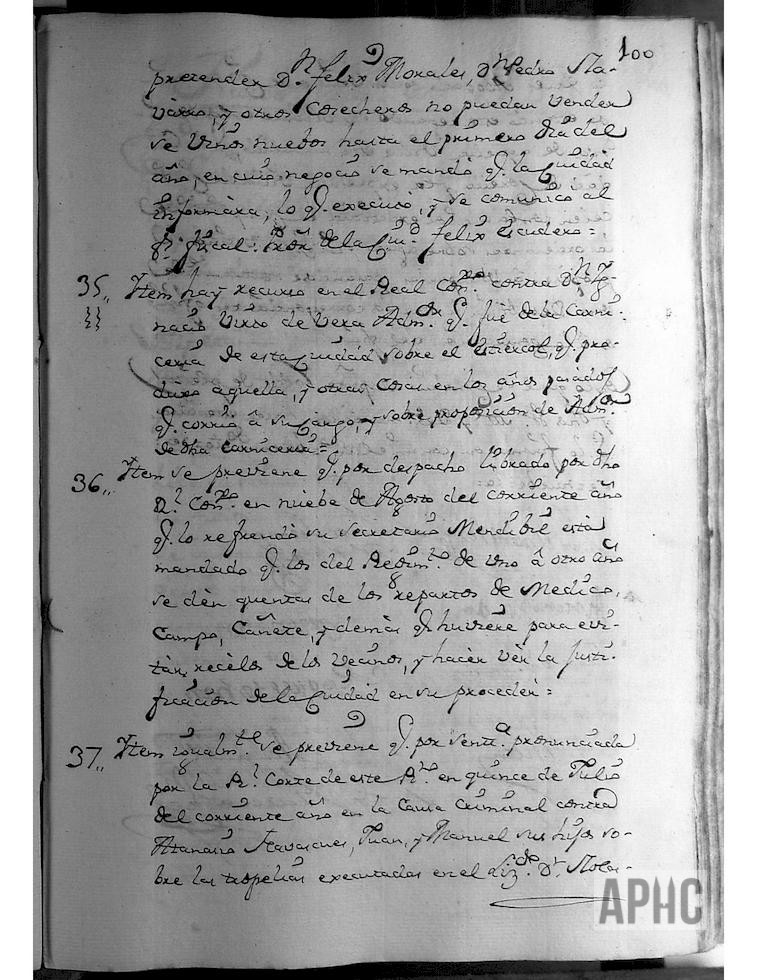 100
pretender Dn. Felix Morales, Dn. Pedro Na-
varro, y otros Cosecheros no puedan vender
se Vinos nuebos hasta el primero dia del
año, en cuio negocio se mandó q. la Ciudad
informara, lo q. executó, y se comunicó al
Sr. fiscal. Prör. de la Ciud. Felix Escudero =
35,, Item hay recurso en el Real Conso. contra Dn. Ig-
nacio Virto de Vera Admor. q. fué de la Carni-
ceria de esta Ciudad sobre el Estiercol, q. pro-
duxo aquella, y otras Cosas en los años pasados
q. corrió â su Cargo, y sobre proposicion de Admor.
de dha Carniceria =
36,, Item se previene q. por despacho librado por dho
Rl. Conso. en nuebe de Agosto del corriente año
q. lo refrendó su Secretario Mendibil està
mandado q. los del Regimto. de uno â otro año
se dèn quentas de los repartos de Medico,
Campo, Cañete, y demàs q. huviere para evi-
tar recèlos de los Vecinos, y hacer vèr la Justi-
ficacion de la Ciudad en su procedèr =
37,, Item igualmte. se previene q. por Senta. pronunciada
por la Rl. Corte de este Rno. en quince de Julio
del corriente año en la Causa Criminal contra
Atanasio Navascues, Juan, y Manuel sus hijos so-
bre las tropelias executadas en el Lizdo. Dn. Nolas-
APHC